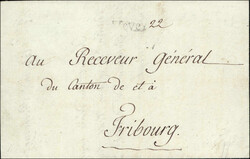 22
Au Receveur Général
du Canton de et à
Fribourg.